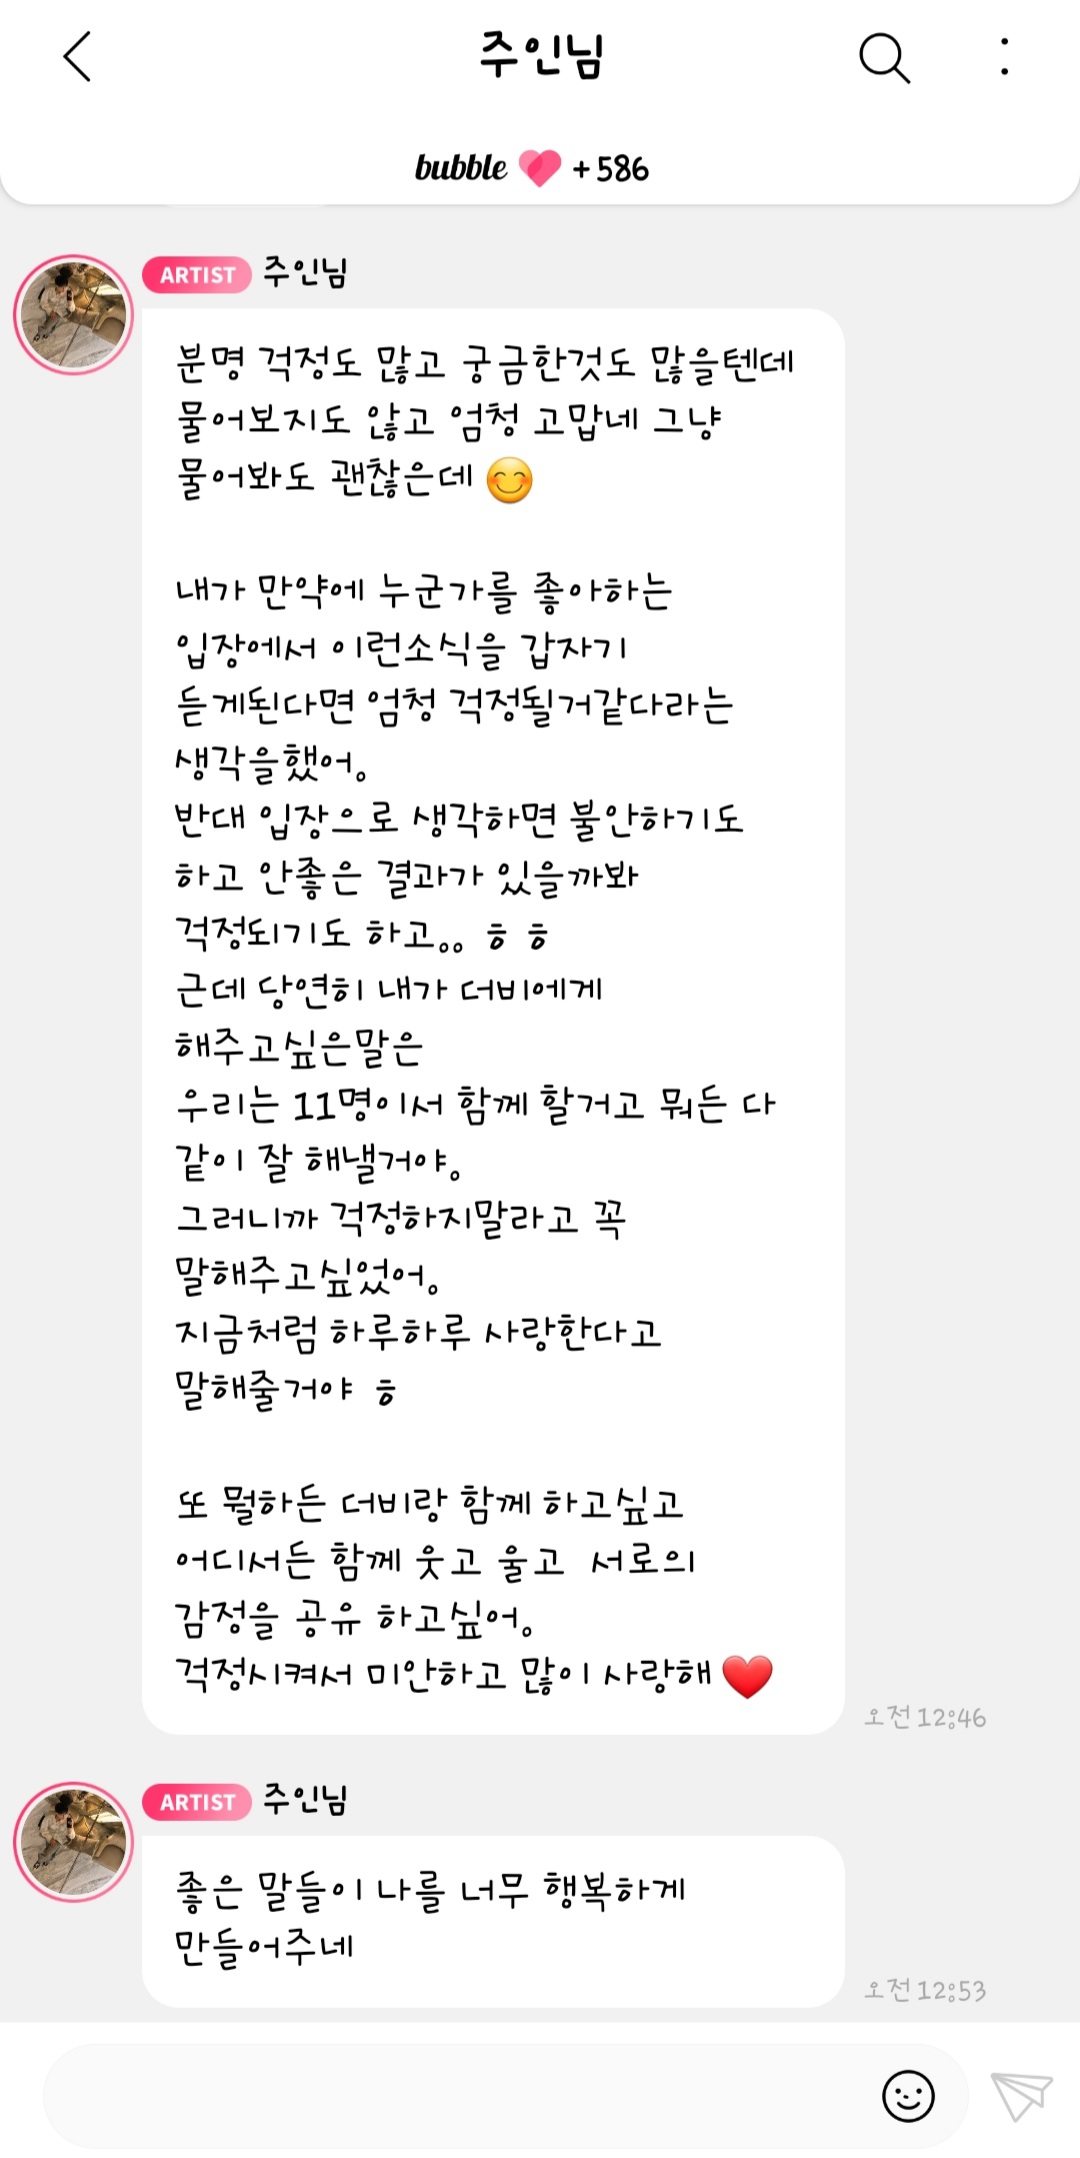 주인님
bubble +586
ARTIST 주인님
분명 걱정도 많고 궁금한것도 많을텐데
물어보지도 않고 엄청 고맙네 그냥
물어봐도 괜찮은데 😊
내가 만약에 누군가를 좋아하는
입장에서 이런소식을 갑자기
듣게된다면 엄청 걱정될거같다라는
생각을했어.
반대 입장으로 생각하면 불안하기도
하고 안좋은 결과가 있을까봐
걱정되기도 하고.. ㅎㅎ
근데 당연히 내가 더비에게
해주고싶은말은
우리는 11명이서 함께 할거고 뭐든 다
같이 잘 해낼거야.
그러니까 걱정하지말라고 꼭
말해주고싶었어.
지금처럼 하루하루 사랑한다고
말해줄거야 ㅎ
또 뭘하든 더비랑 함께 하고싶고
어디서든 함께 웃고 울고 서로의
감정을 공유 하고싶어.
걱정시켜서 미안하고 많이 사랑해 ❤️
오전 12:46
ARTIST 주인님
좋은 말들이 나를 너무 행복하게
만들어주네
오전 12:53